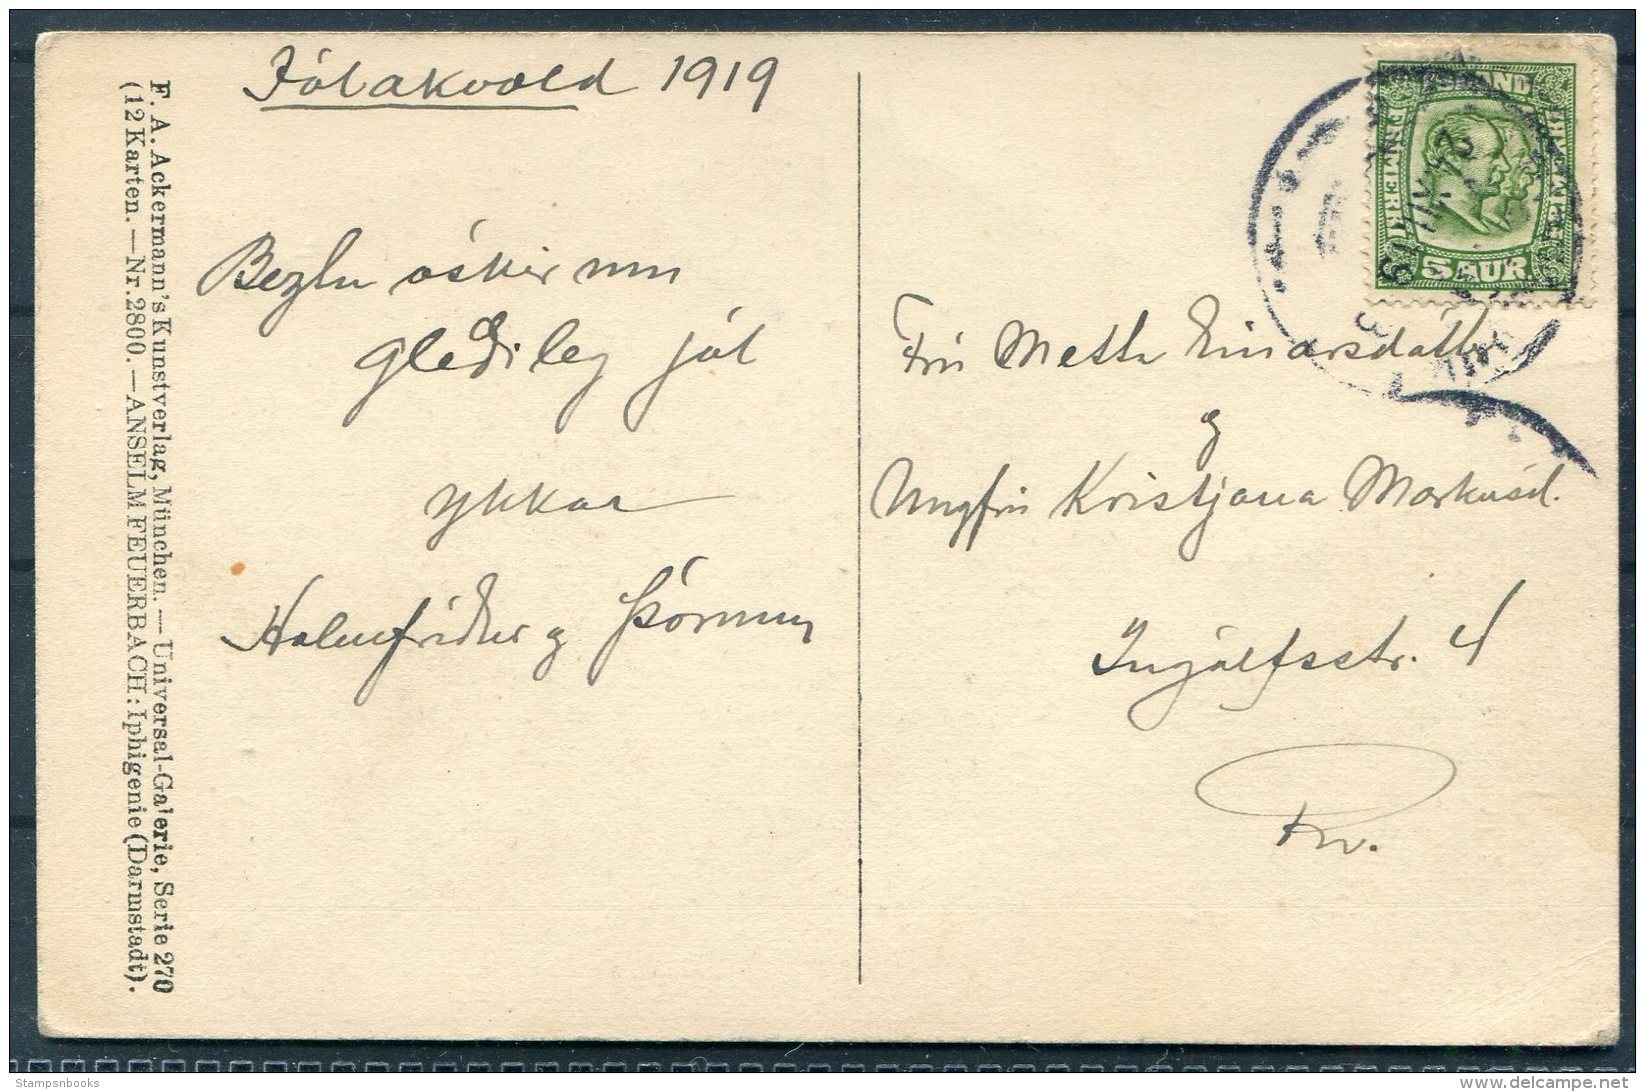 Jólakvöld 1919
Beztu óskir um
gleðileg jól
ykkar
Hólmfríður og Þórunn
Frú Mette Einarsdóttir
og
Ungfrú Kristjana Markúsd.
Ingólfsstr. 4
Rv.
5 AUR.
F. A. Ackermann's Kunstverlag, München. — Universal-Galerie, Serie 270
(12 Karten. — Nr. 2800. — ANSELM FEUERBACH: Iphigenie (Darmstadt).
Stampsnbooks
delcampe.net